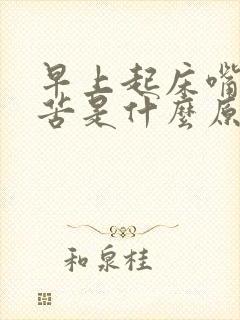 早上起床嘴
苦是什麼原
和泉桂